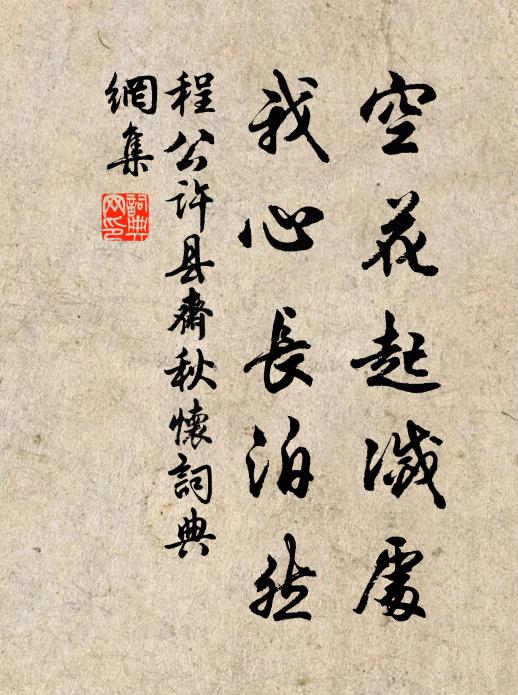 空花起滅處
我心長泊然
程公許县齋秋懷詞典
網集
詞典
网印